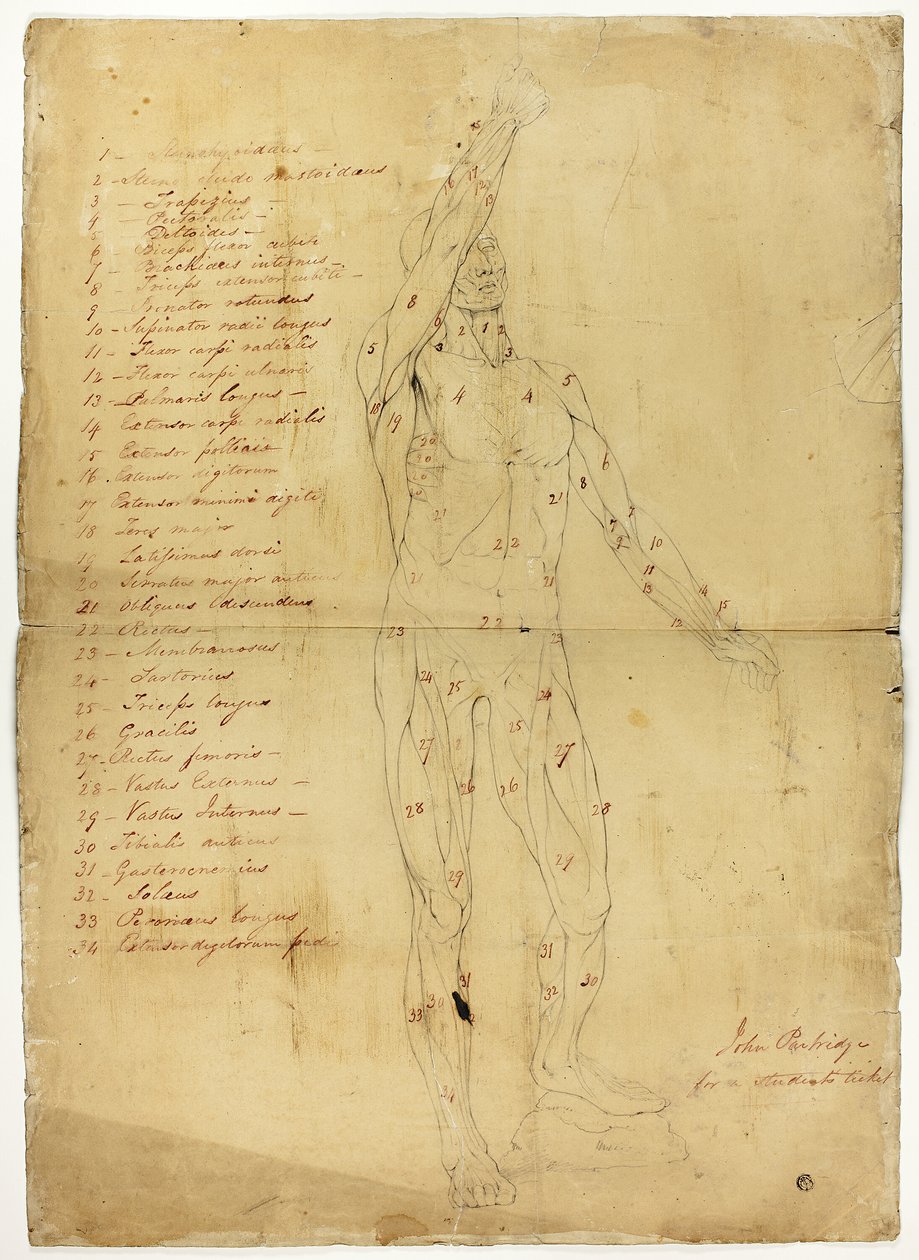 1 - Sternohyoidæus -
2 - Sterno cleido mastoidæus
3 - Trapezius -
4 - Pectoralis -
5 Deltoides -
6 - Biceps flexor cubiti
7 - Brachiæus internus -
8 - Triceps extensor cubiti -
9 - Pronator rotundus
10 - Supinator radii longus
11 - Flexor carpi radialis
12 - Flexor carpi ulnaris
13 - Palmaris longus -
14 Extensor carpi radialis
15 Extensor pollicis
16 . Extensor digitorum
17 Extensor minimi digiti
18 Teres major
19 Latissimus dorsi
20 Serratus major anticus
21 Obliquus descendens
22 - Rectus -
23 - Membranosus
24 - Sartorius
25 - Triceps longus
26 Gracilis
27 - Rectus femoris -
28 - Vastus Externus -
29 - Vastus Internus -
30 Tibialis anticus
31 - Gasterocnemius
32 - Solæus
33 Peronæus longus
34 Extensor digitorum pedis
16 17 12
13
8
6
2 1 2
5 3 3
4 4 5
18 19
20
20
20
6
8
21
7 7
9 10
21
22
11
13
14
21 21
15
12
22
23 23
24 25 24
25
27 27
26 26
28 28
29
29
31
31 30
32
30
33
34
John Partridge
for a students ticket